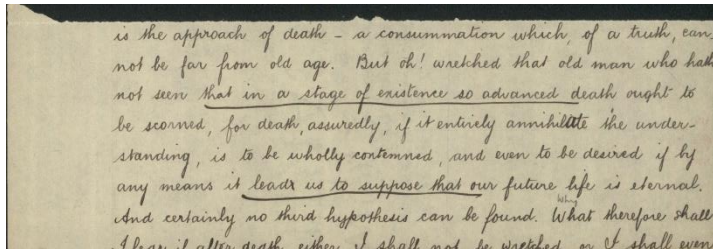 is the approach of death – a consummation which, of a truth, can
not be far from old age. But oh! wretched that old man who hath
not seen that in a stage of existence so advanced death ought to
be scorned, for death, assuredly, if it entirely annihilate the under-
standing, is to be wholly contemned, and even to be desired if by
any means it leads us to suppose that our future life is eternal.
And certainly no third hypothesis can be found. What therefore shall
I fear if after death either I shall not be wretched or I shall even